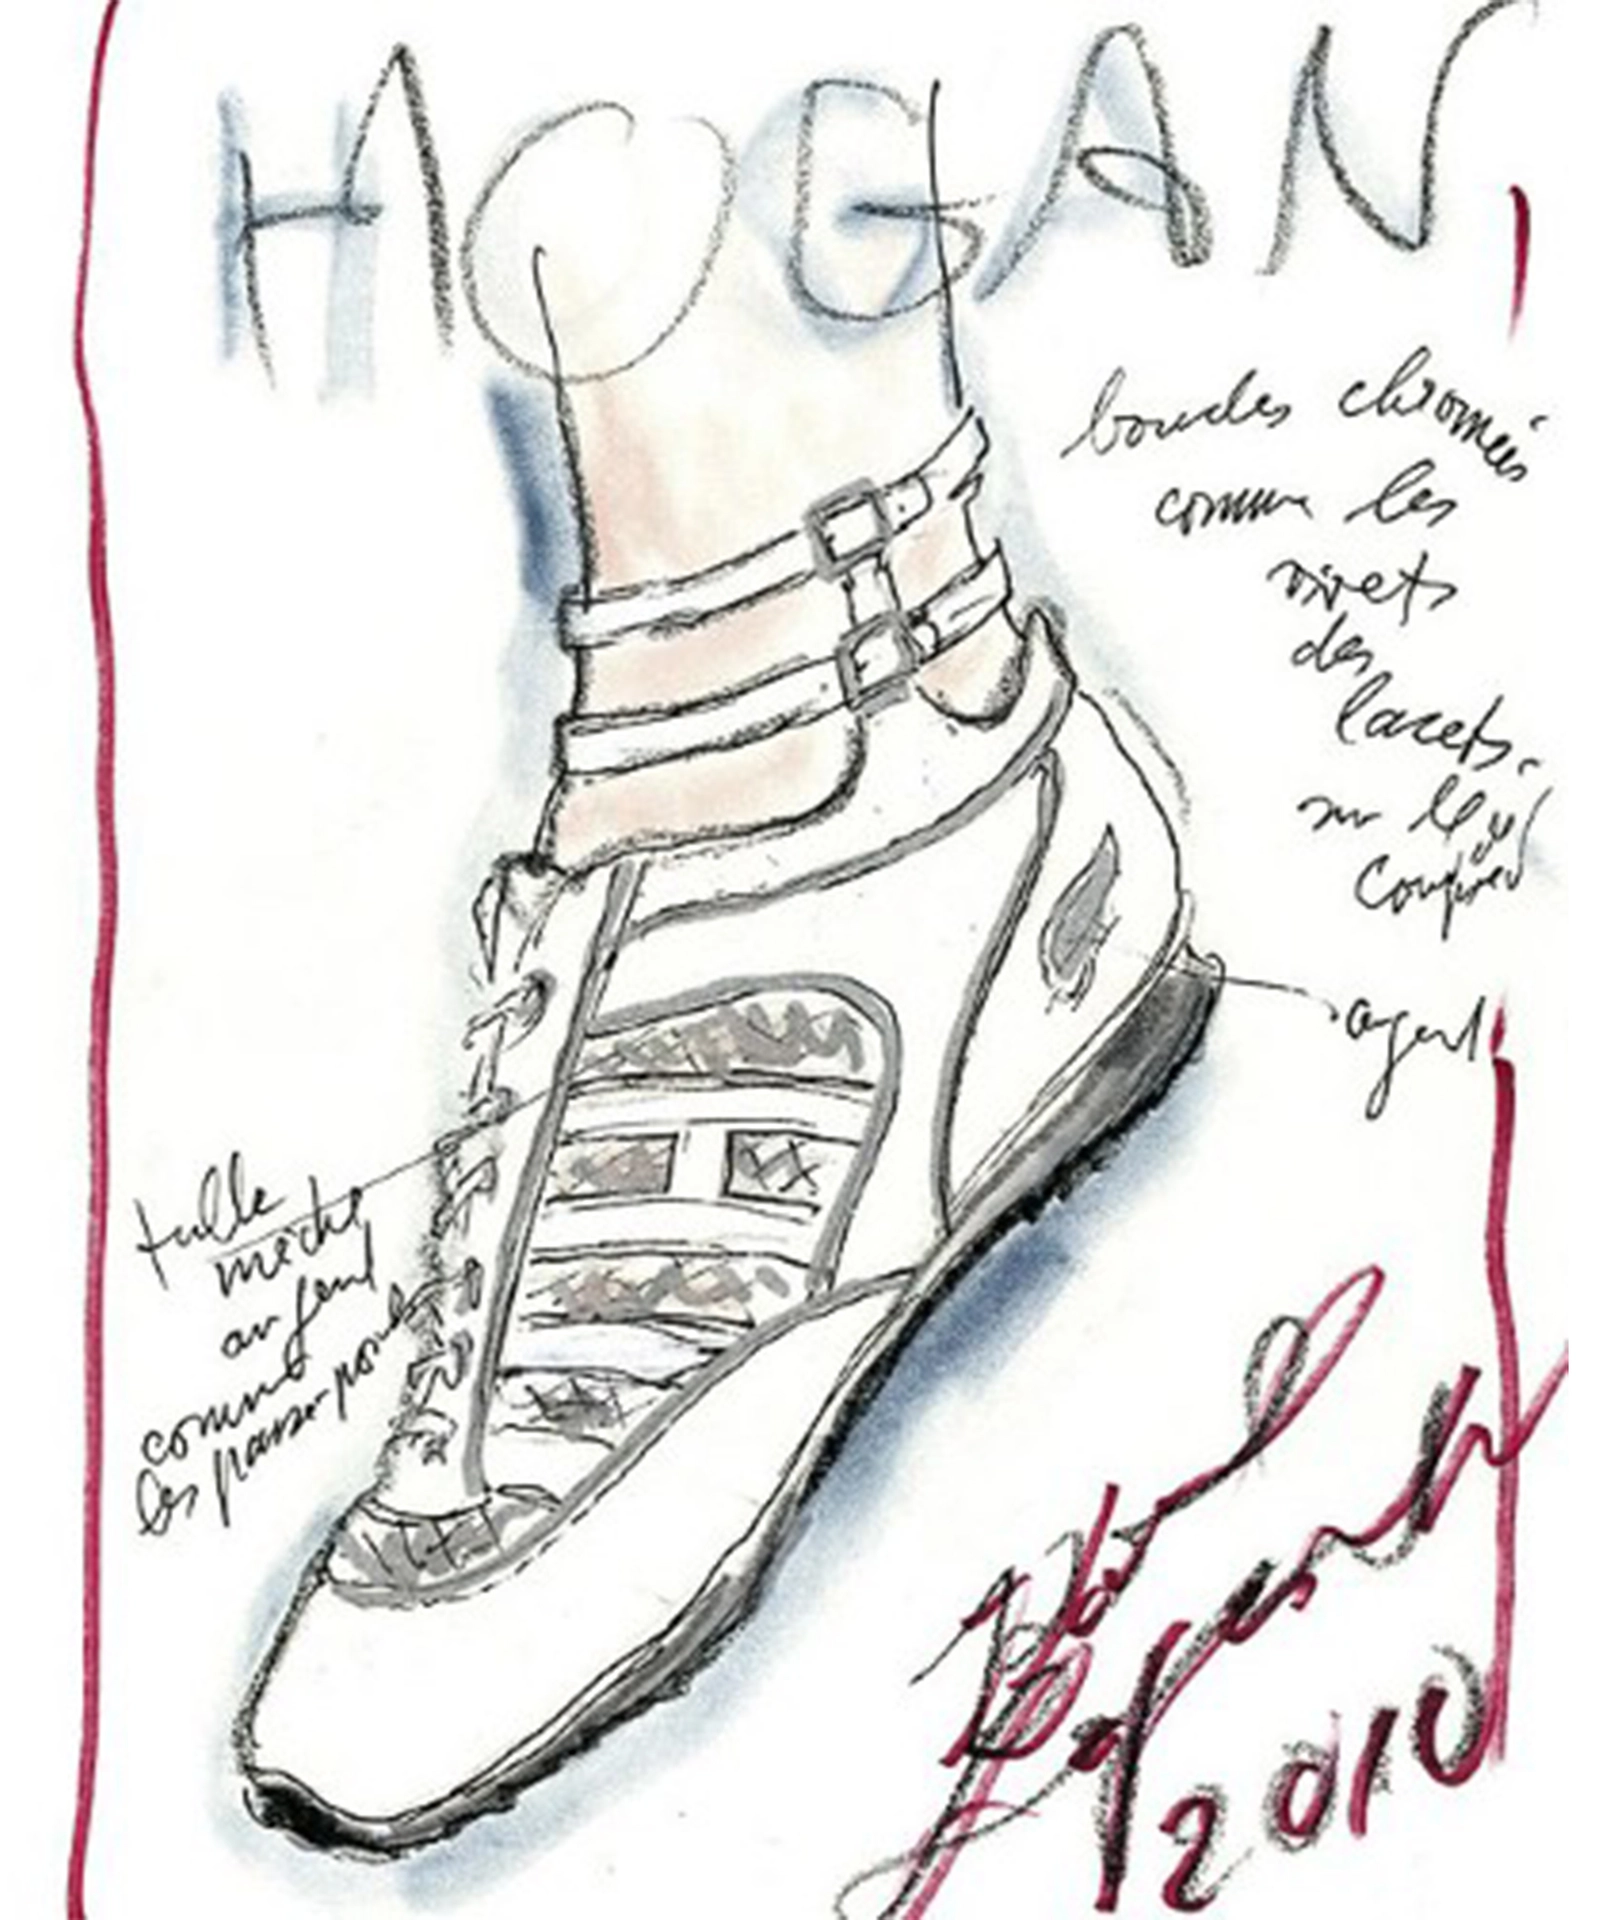 HOGAN
boucles chromées
comme les
rivets
des
lacets.
sur le
argent
tulle
au
comme
les passe-poils
Karl
Lagerfeld
2010